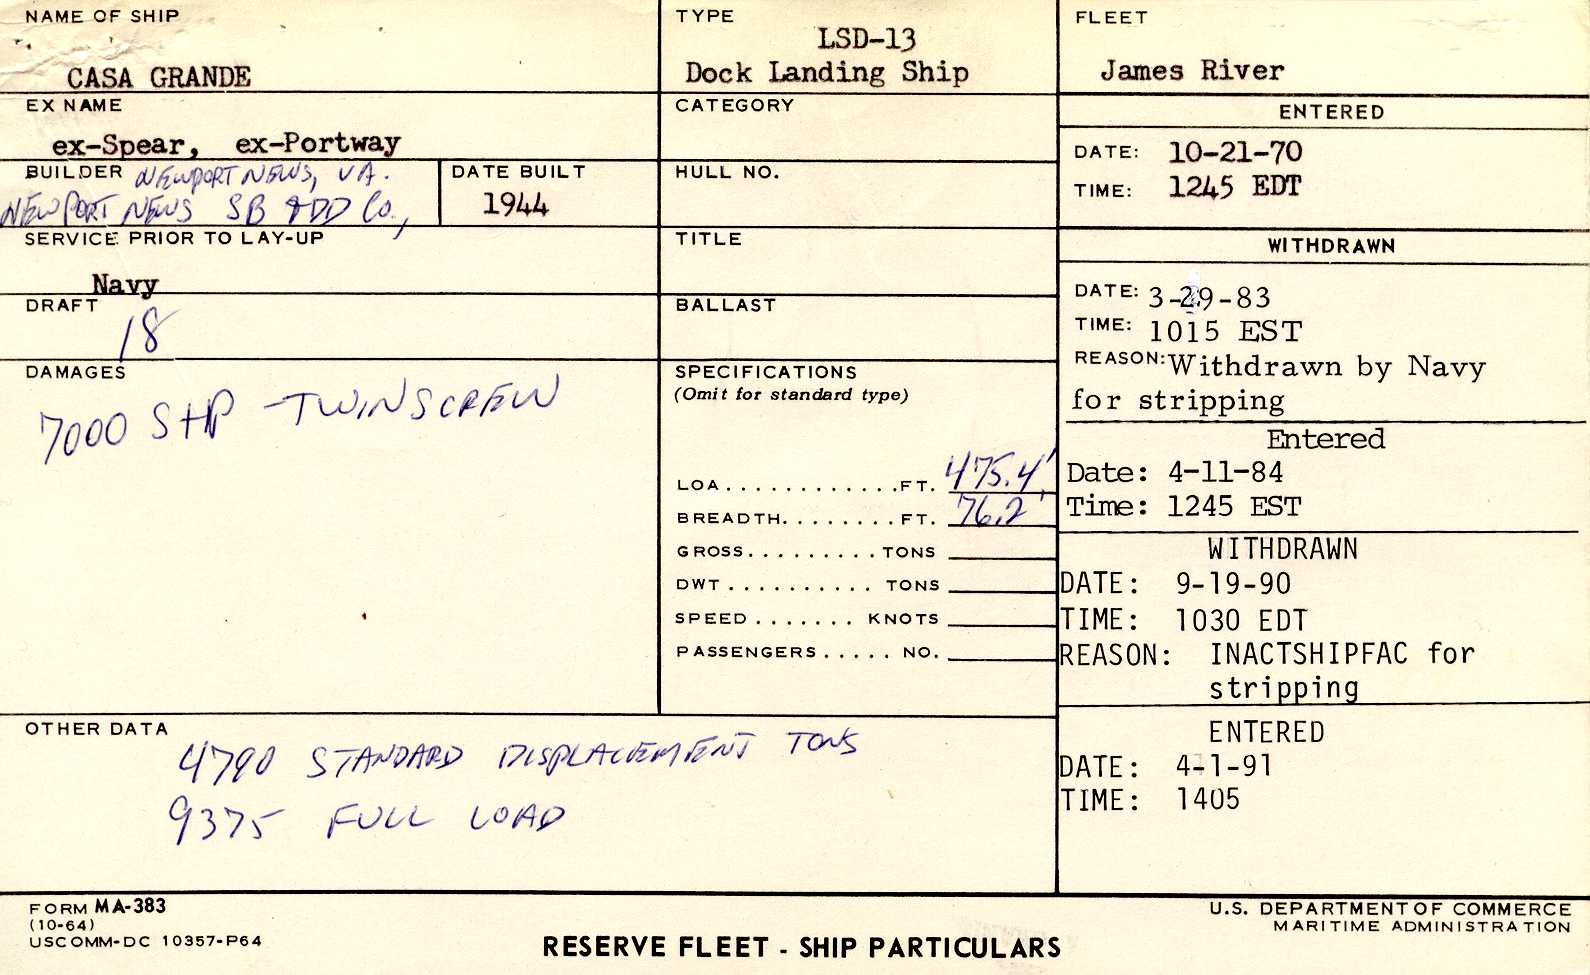 NAME OF SHIP
CASA GRANDE
EX NAME
ex-Spear, ex-Portway
BUILDER NEWPORT NEWS, VA.
NEWPORT NEWS SB & DD Co.,
DATE BUILT
1944
SERVICE PRIOR TO LAY-UP
Navy
DRAFT
18
DAMAGES
7000 SHP - TWINSCREW
TYPE
LSD-13
Dock Landing Ship
CATEGORY
HULL NO.
TITLE
BALLAST
SPECIFICATIONS
(Omit for standard type)
LOA............FT. 475.4'
BREADTH........FT. 76.2'
GROSS..........TONS
DWT..........TONS
SPEED.......KNOTS
PASSENGERS.....NO.
FLEET
James River
ENTERED
DATE: 10-21-70
TIME: 1245 EDT
WITHDRAWN
DATE: 3-29-83
TIME: 1015 EST
REASON: Withdrawn by Navy
for stripping
Entered
Date: 4-11-84
Time: 1245 EST
WITHDRAWN
DATE: 9-19-90
TIME: 1030 EDT
REASON: INACTSHIPFAC for
stripping
ENTERED
DATE: 4-1-91
TIME: 1405
OTHER DATA
4790 STANDARD DISPLACEMENT TONS
9375 FULL LOAD
FORM MA-383
(10-64)
USCOMM-DC 10357-P64
RESERVE FLEET - SHIP PARTICULARS
U.S. DEPARTMENT OF COMMERCE
MARITIME ADMINISTRATION